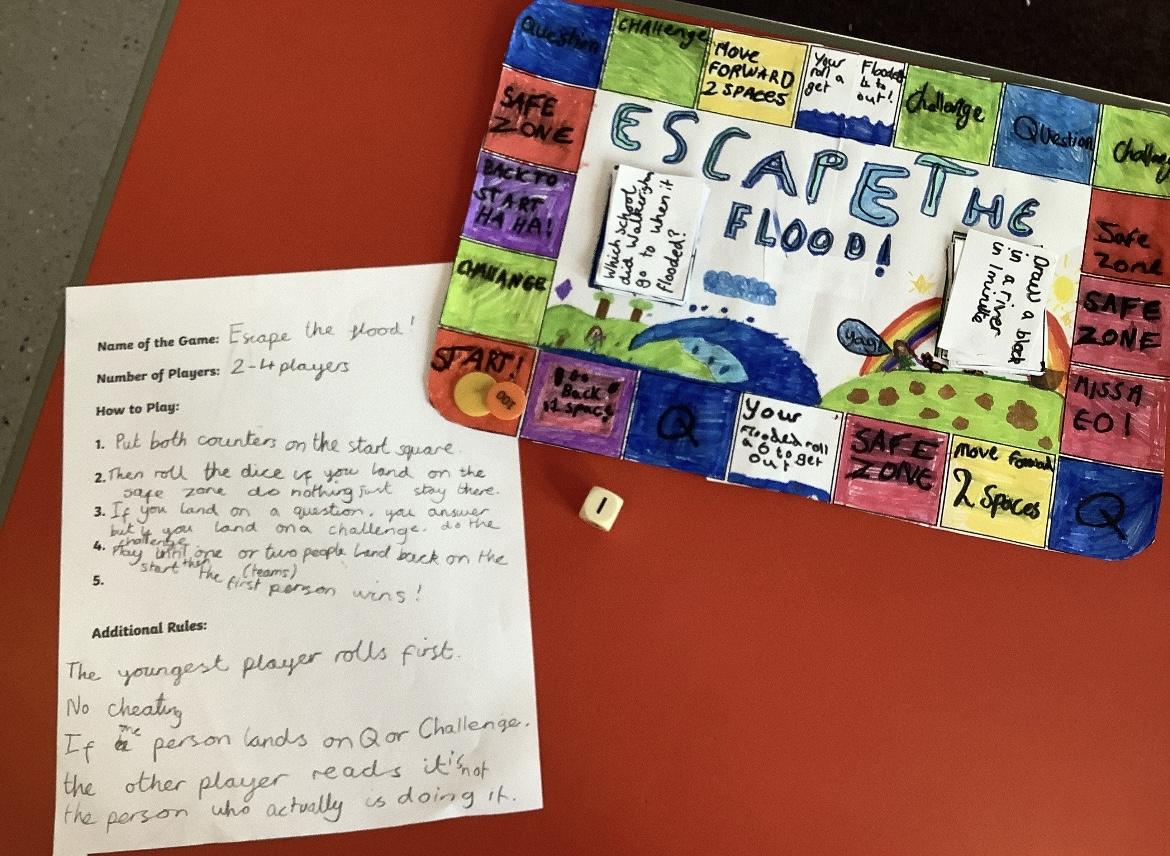 Question
CHallenge
Move
FORWARD
2 SPACES
Your Flooded
roll a 4 to
get out!
Challenge
Question
Challeng
SAFE
ZONE
BACK TO
START
HA HA!
CHALLANGE
START!
100
ESCAPE THE
FLOOD!
Which school
did Walkergh
go to when it
flooded?
Draw a black
in a river
in 1 minute
yay!
Safe
Zone
SAFE
ZONE
MISS A
GO!
Go
Back
1 space
Q
your
flooded roll
a 6 to get
out
SAFE
ZONE
move forward
2 Spaces
Q
1
Name of the Game: Escape the flood!
Number of Players: 2-4 players
How to Play:
1. Put both counters on the start square.
2. Then roll the dice if you land on the
safe zone do nothing just stay there.
3. If you land on a question, you answer
but if you land on a challenge. do the
challenge
4. Play until one or two people land back on the
start then the (teams)
5. first person wins!
Additional Rules:
The youngest player rolls first.
No cheating
If one person lands on Q or Challenge.
the other player reads it is not
the person who actually is doing it.